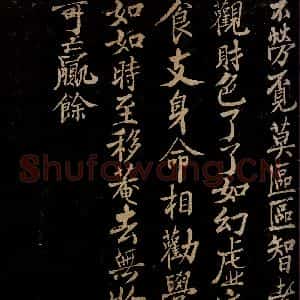 不勞覓莫區區智者
觀財色了了如幻虛
食支身命相勸學
如如時至移庵去無
可贏餘
Shufawang.CN